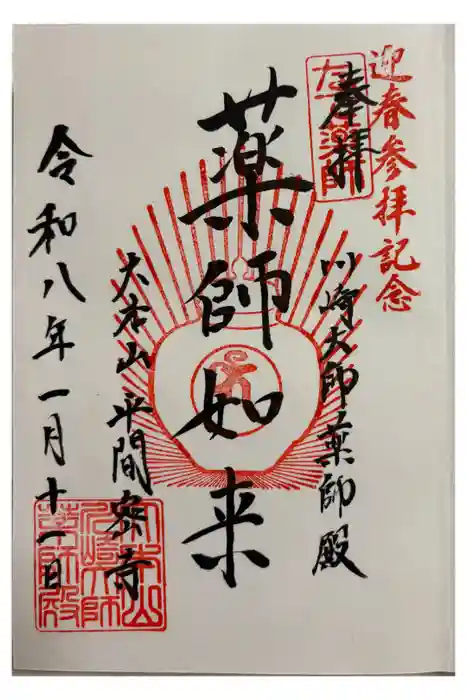 迎春参拝記念
奉拝
川崎大師薬師殿
薬師如来
大本山 平間寺
令和八年一月十一日